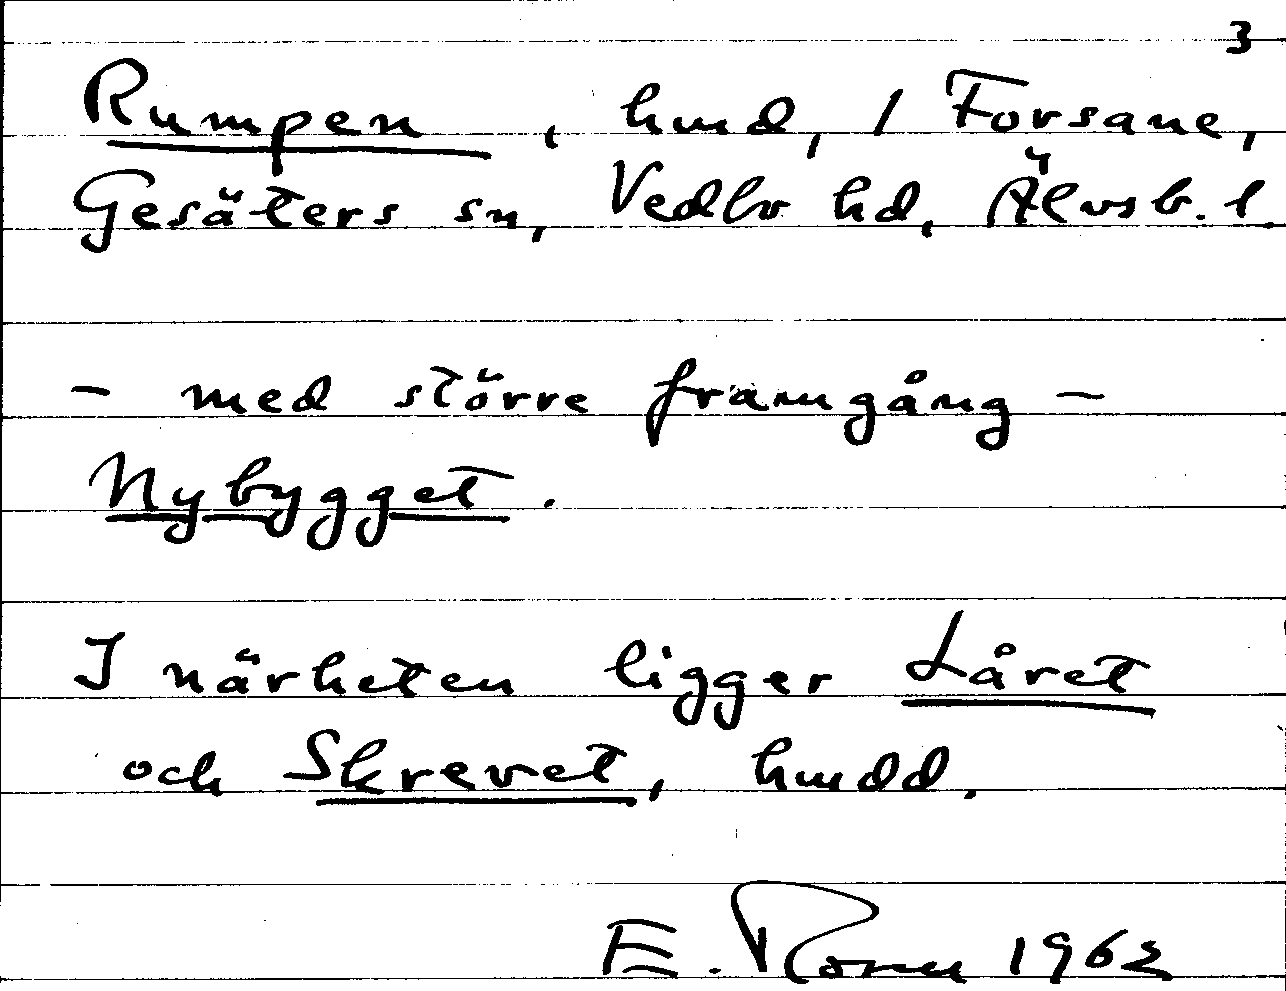 3
Rumpen, hmd, / Forsane,
Gesäters sn, Vedbo hd, Älvsb. l.
- med större framgång -
Nybygget.
I närheten ligger Låret
och Skrevet, hmdd.
E. 1962